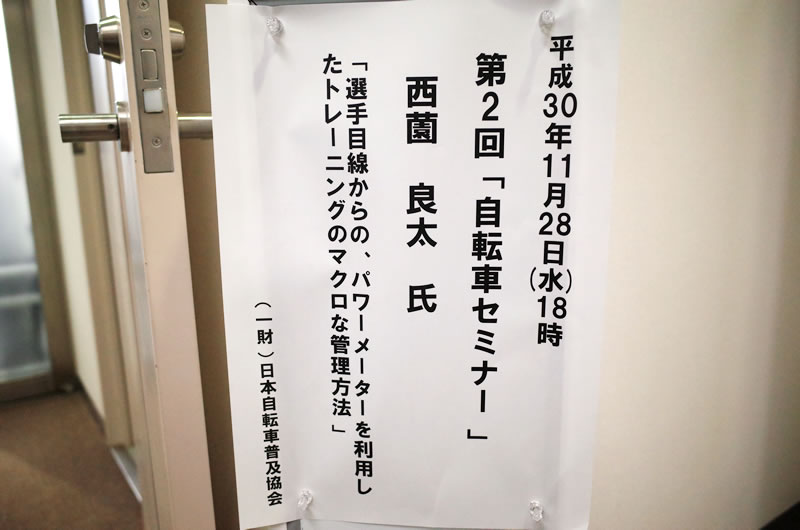 平成30年11月28日(水)18時
第2回「自転車セミナー」
西薗 良太 氏
「選手目線からの、パワーメーターを利用し
たトレーニングのマクロな管理方法」
(一財)日本自転車普及協会